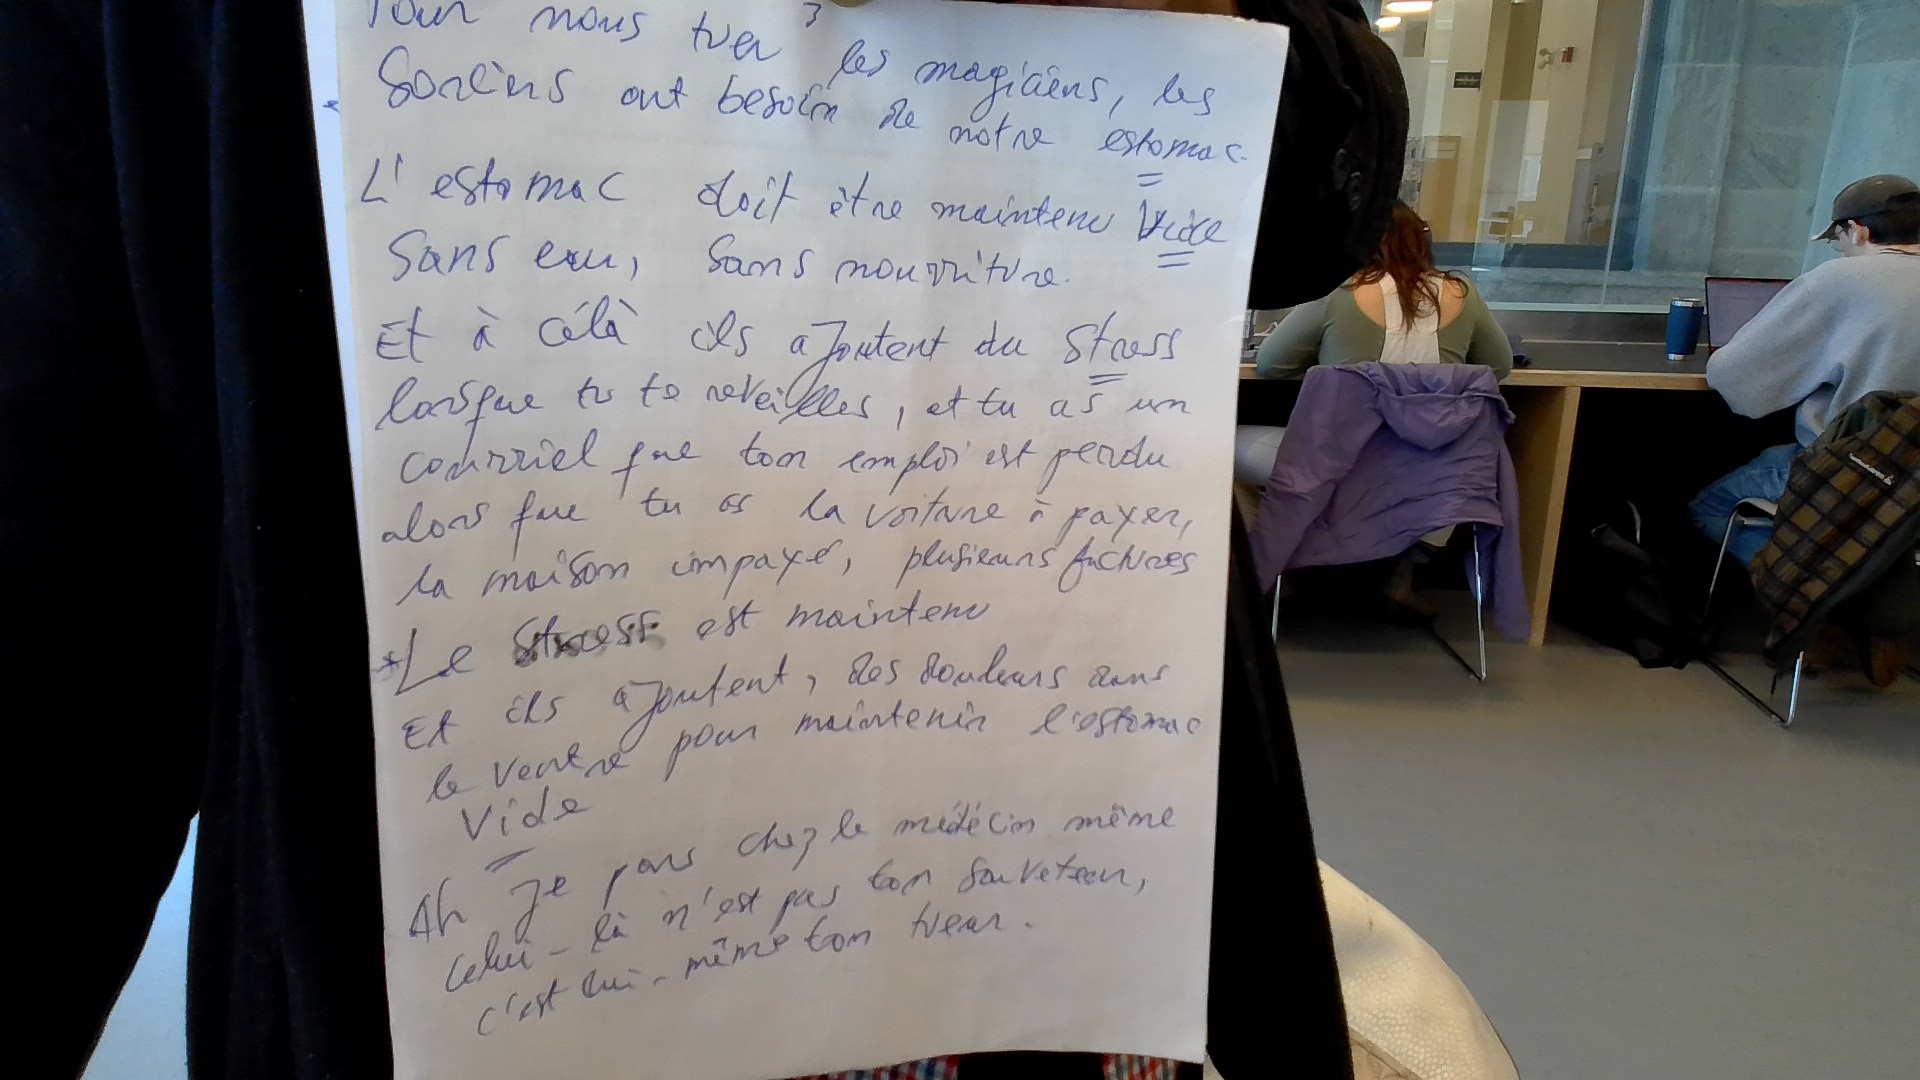 Pour nous tuer, les magiciens, les
Sorciers ont besoin de notre estomac.
L'estomac doit être maintenu Vide
Sans eau, Sans nourriture.
Et à célà ils ajoutent du Stress
lorsque tu te réveilles, et tu as un
courriel que ton emploi est perdu
alors que tu as la voiture à payer,
la maison impayé, plusieurs factures
*Le Stress est maintenu
Et ils ajoutent, des douleurs dans
le ventre pour maintenir l'estomac
Vide
Ah je pars chez le médécin même
celui-là n'est pas ton sauveteur,
c'est lui-même ton tueur.